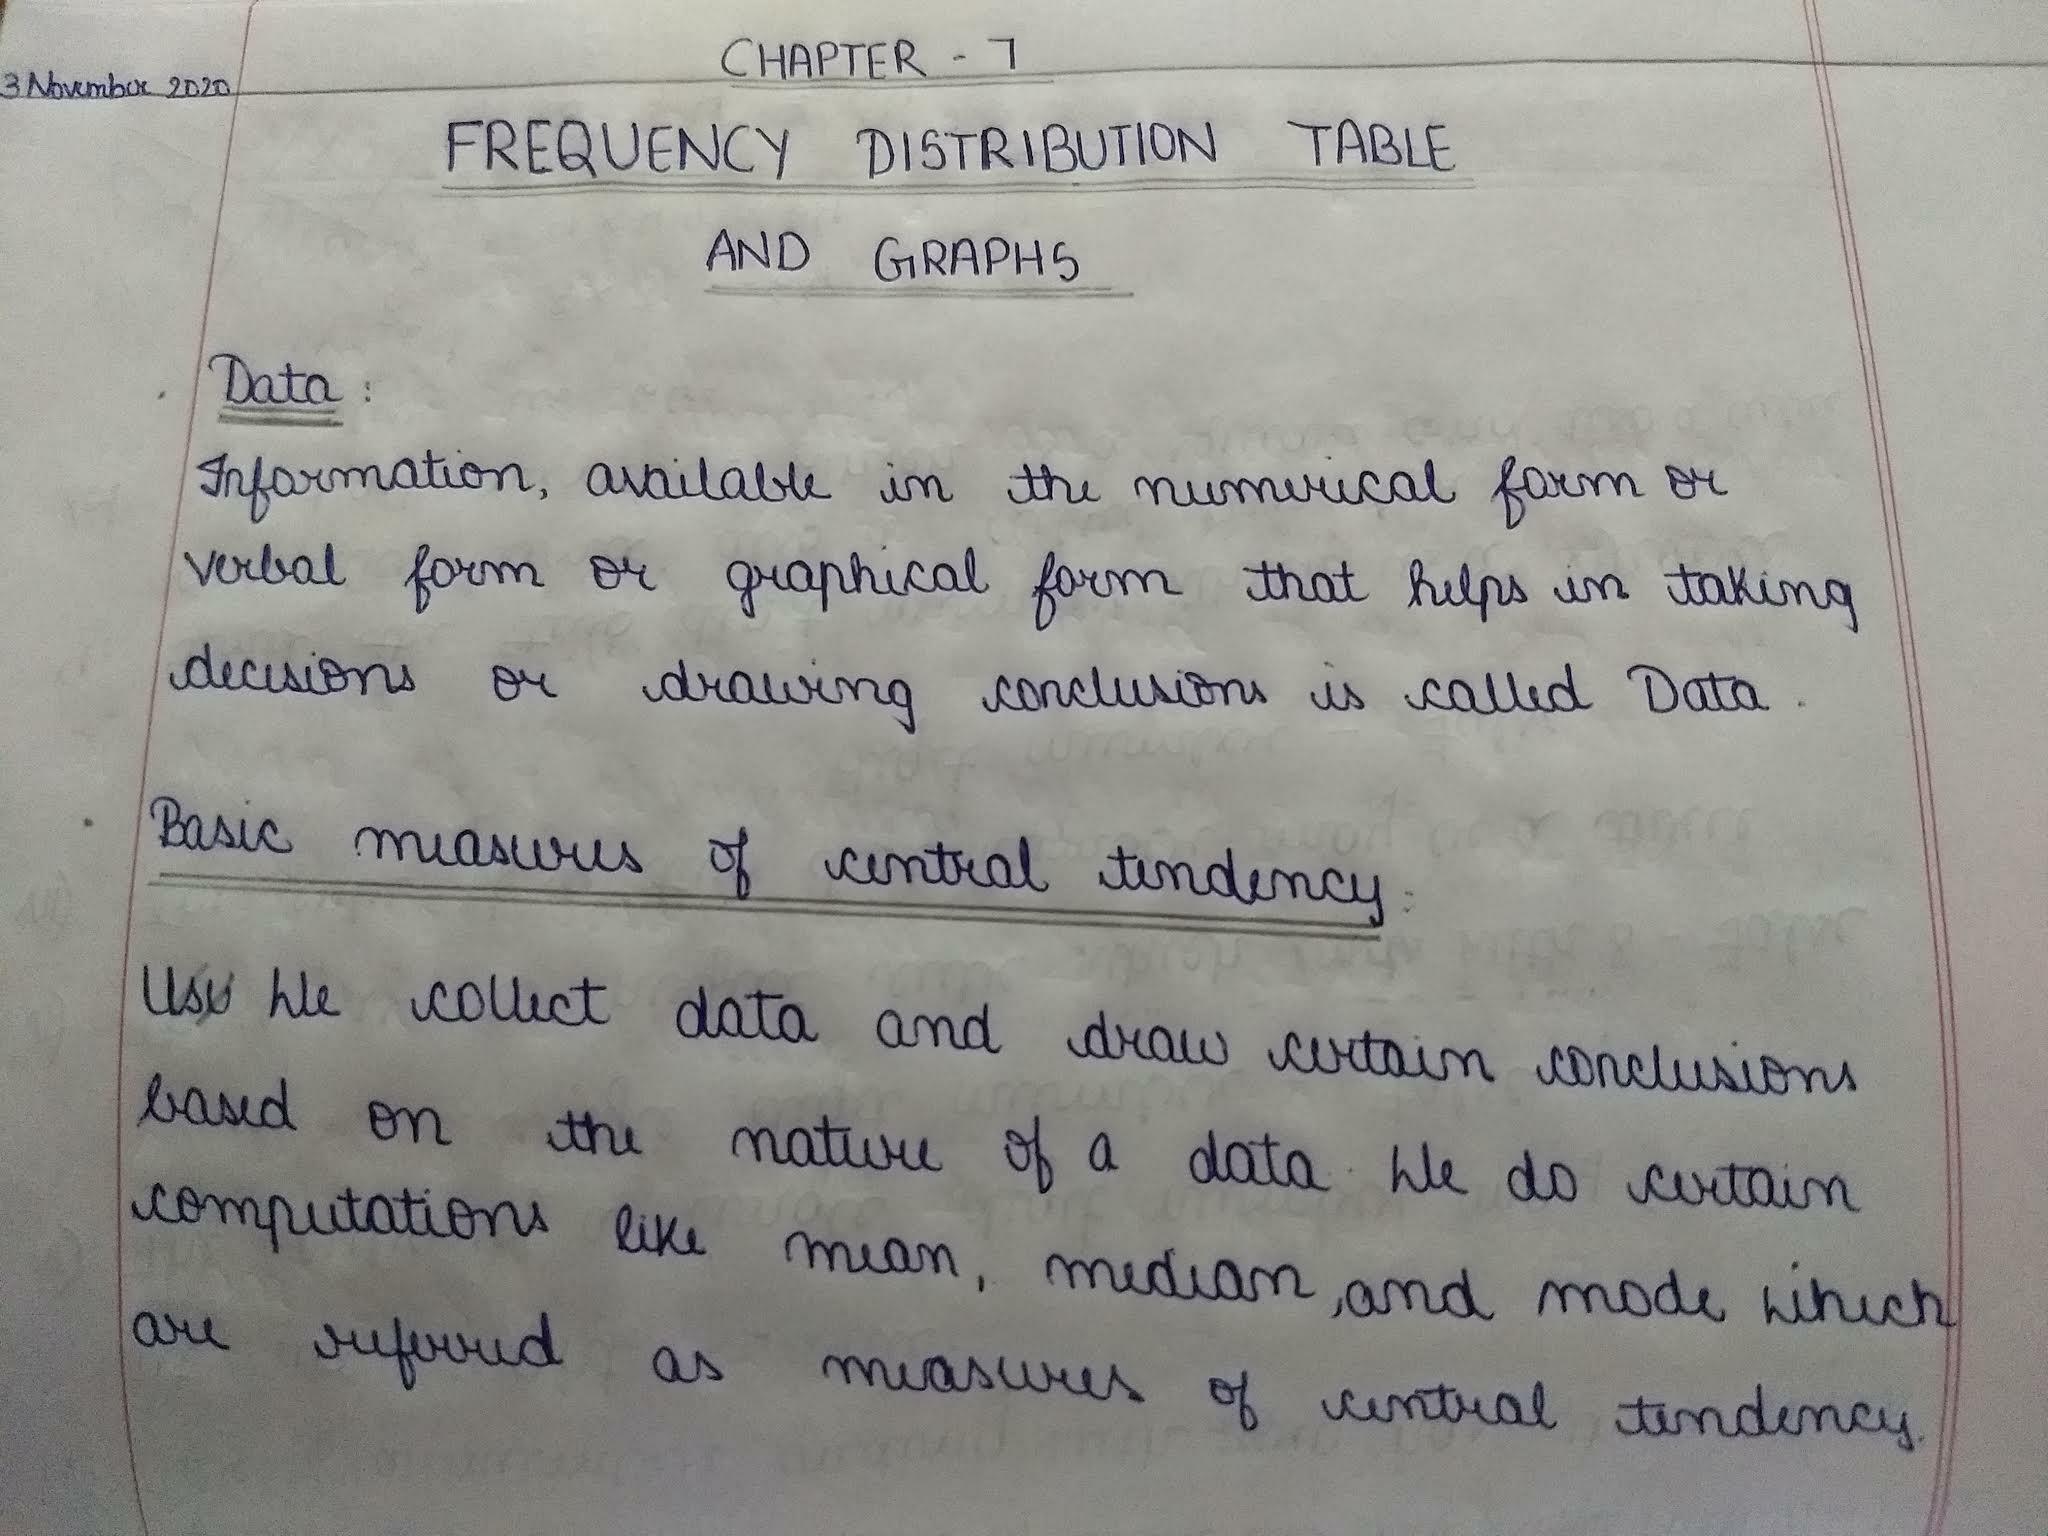 CHAPTER - 7
3 November 2020
FREQUENCY DISTRIBUTION TABLE
AND GRAPHS
Data :
Information, available in the numerical form or
verbal form or graphical form that helps in taking
decisions or drawing conclusions is called Data.
Basic measures of central tendency:
Use We collect data and draw certain conclusions
based on the nature of a data. We do certain
computations like mean, median, and mode which
are referred as measures of central tendency.